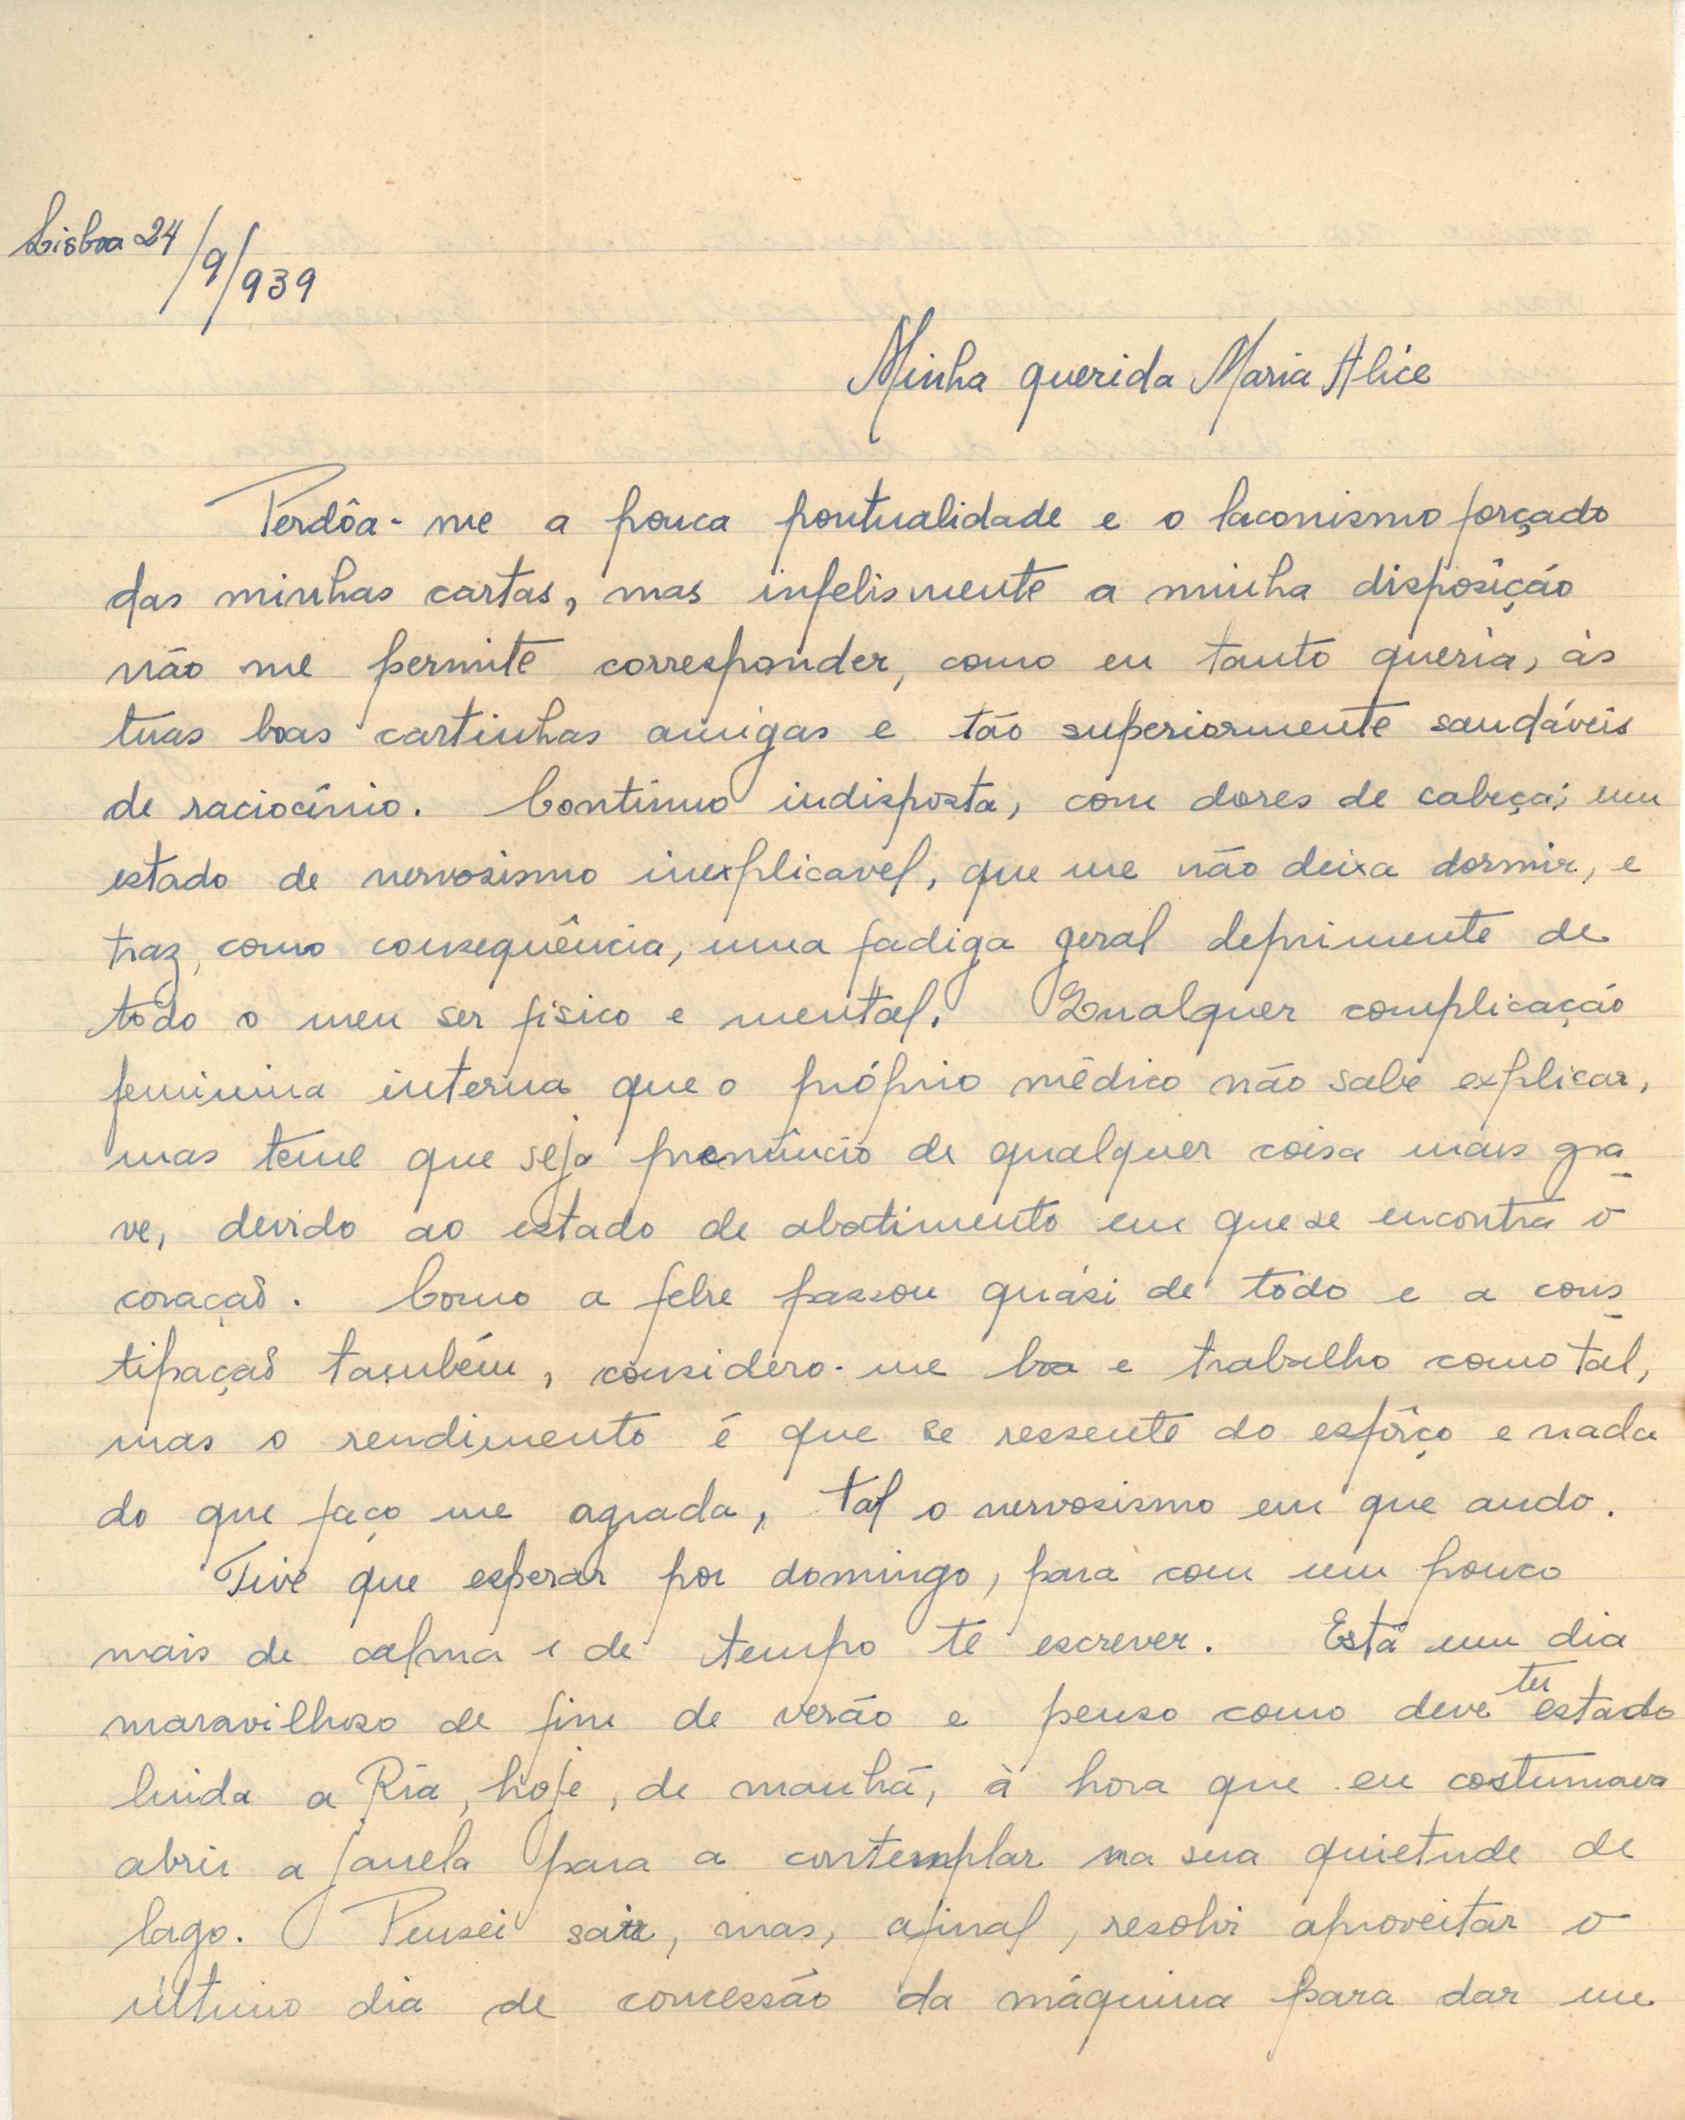 Lisboa 24/9/939
Minha querida Maria Alice
Perdôa-me a pouca pontualidade e o laconismo forçado
das minhas cartas, mas infelismente a minha disposição
não me permite corresponder, como eu tanto queria, às
tuas boas cartinhas amigas e tão superiormente saudáveis
de raciocínio. Contínuo indisposta, com dores de cabeça; um
estado de nervosismo inexplicavel, que me não deixa dormir, e
traz, como consequência, uma fadiga geral deprimente de
todo o meu ser fisico e mental. Qualquer complicação
feminina interna que o próprio médico não sabe explicar,
mas teme que seja prenúncio de qualquer coisa mais gra
ve, devido ao estado de abatimento em que se encontra o
coração. Como a febre passou quási de todo e a cons
tipação também, considero-me boa e trabalho como tal,
mas o rendimento é que se ressente do esfôrço e nada
do que faço me agrada, tal o nervosismo em que ando.
Tive que esperar por domingo, para com um pouco
mais de calma e de tempo te escrever. Está um dia
maravilhoso de fim de verão e penso como deve ter estado
linda a Ria, hoje, de manhã, à hora que eu costumava
abrir a janela para a contemplar na sua quietude de
lago. Pensei sair, mas, afinal, resolvi aproveitar o
último dia de concessão da máquina para dar um